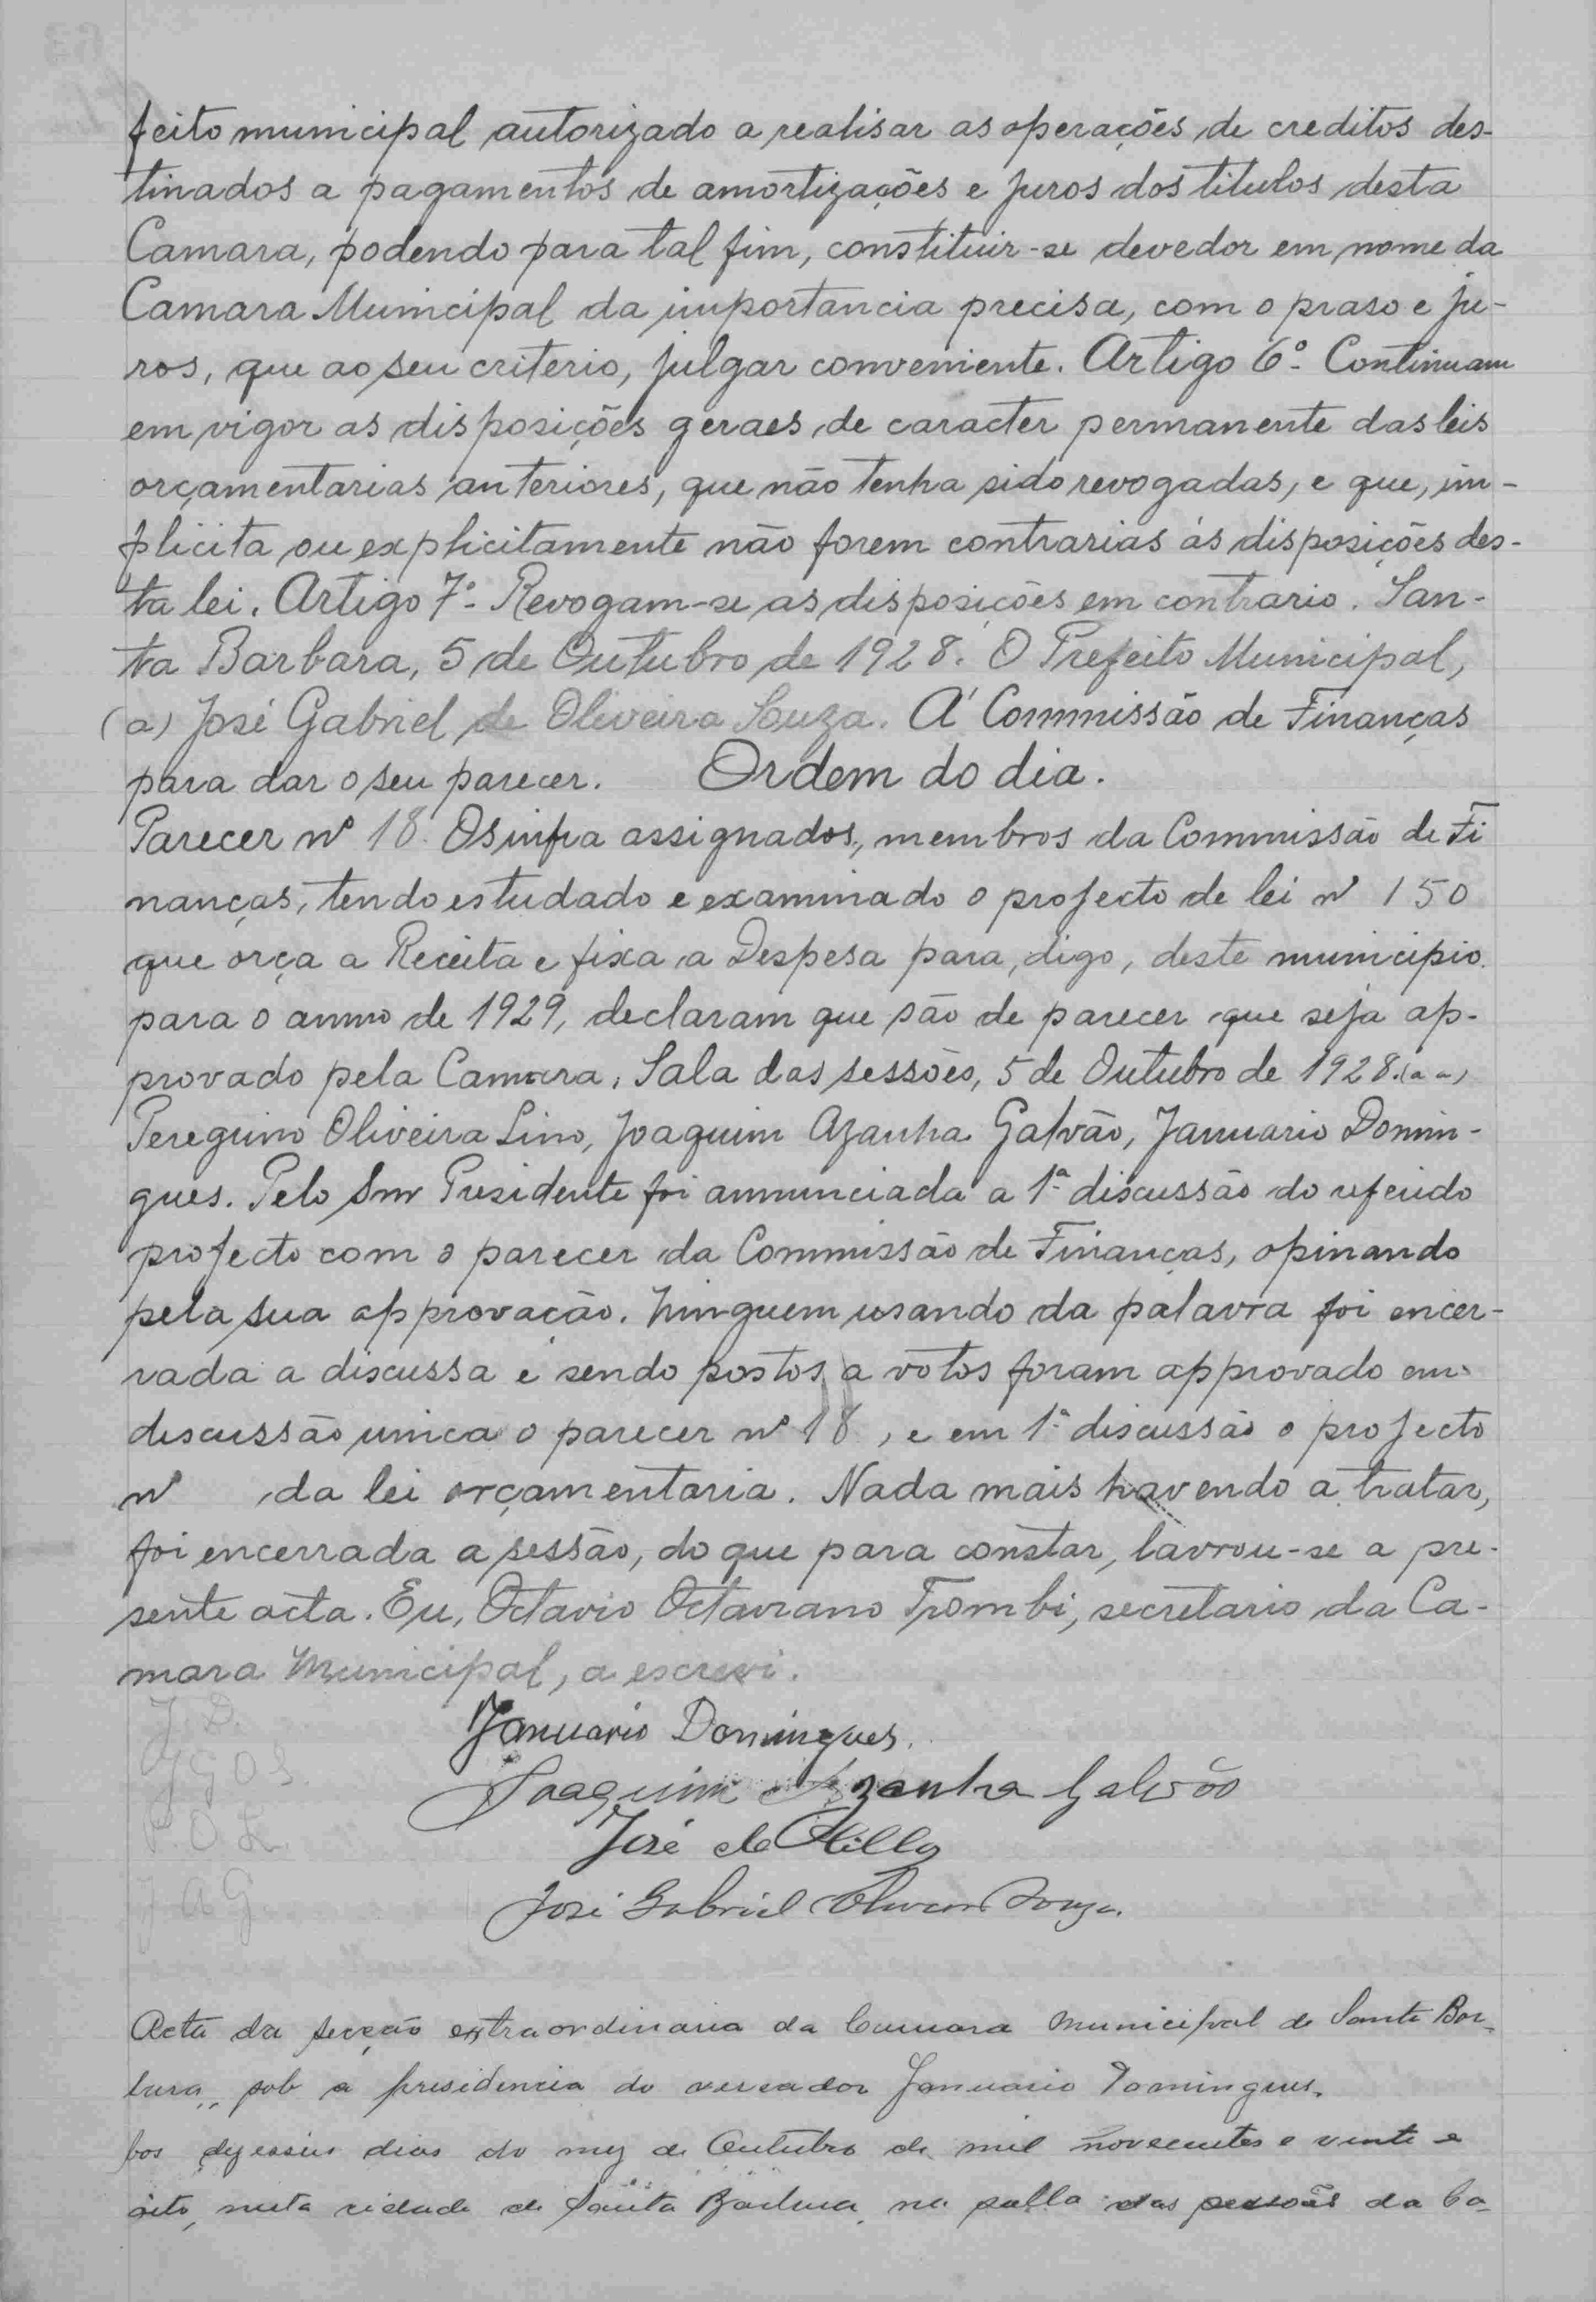 feito municipal autorizado a realisar as operações de creditos des-
tinados a pagamentos de amortizações e juros dos titulos desta
Camara, podendo para tal fim, constituir-se devedor em nome da
Camara Municipal da importancia precisa, com o praso e ju-
ros, que ao seu criterio, julgar conveniente. Artigo 6º- Continuam
em vigor as disposições geraes de caracter permanente das leis
orçamentarias anteriores, que não tenha sido revogadas, e que, im-
plicita ou explicitamente não forem contrarias ás disposições des-
ta lei. Artigo 7º- Revogam-se as disposições em contrario. San-
ta Barbara, 5 de Outubro de 1928. O Prefeito Municipal,
(a) José Gabriel de Oliveira Souza. A' Commissão de Finanças
para dar o seu parecer. Ordem do dia.
Parecer nº 18. Os infra assignados, membros da Commissão de Fi
nanças, tendo estudado e examinado o projecto de lei nº 150
que orça a Receita e fixa a Despesa para, digo, deste municipio
para o anno de 1929, declaram que são de parecer que seja ap-
provado pela Camara. Sala das sessões, 5 de Outubro de 1928. (a a)
Peregrino Oliveira Lino, Joaquim Azanha Galvão, Januario Domin-
gues. Pelo Snr Presidente foi annunciada a 1ª discussão do referido
projecto com o parecer da Commissão de Finanças, opinando
pela sua approvação. Ninguem usando da palavra foi encer-
rada a discussa e sendo postos a votos foram approvado em
discussão unica o parecer nº 18, e em 1ª discussão o projecto
nº da lei orçamentaria. Nada mais havendo a tratar,
foi encerrada a sessão, do que para constar, lavrou-se a pre-
sente acta. Eu, Octavio Octaviano Trombi, secretario da Ca-
mara Municipal, a escrevi.
J. D.
Januario Domingues.
J G O S.
Joaquim Azanha Galvão
P. O. L.
José de
J A G
José Gabriel Oliveira Souza.
Acta da secção extraordinaria da Camara Municipal de Santa Bar-
bara, sob a presidencia do vereador Januario Domingues.
Aos dezesseis dias do mez de Outubro de mil novecentos e vinte e
oito, nesta cidade de Santa Barbara, na salla das sessões da Ca-